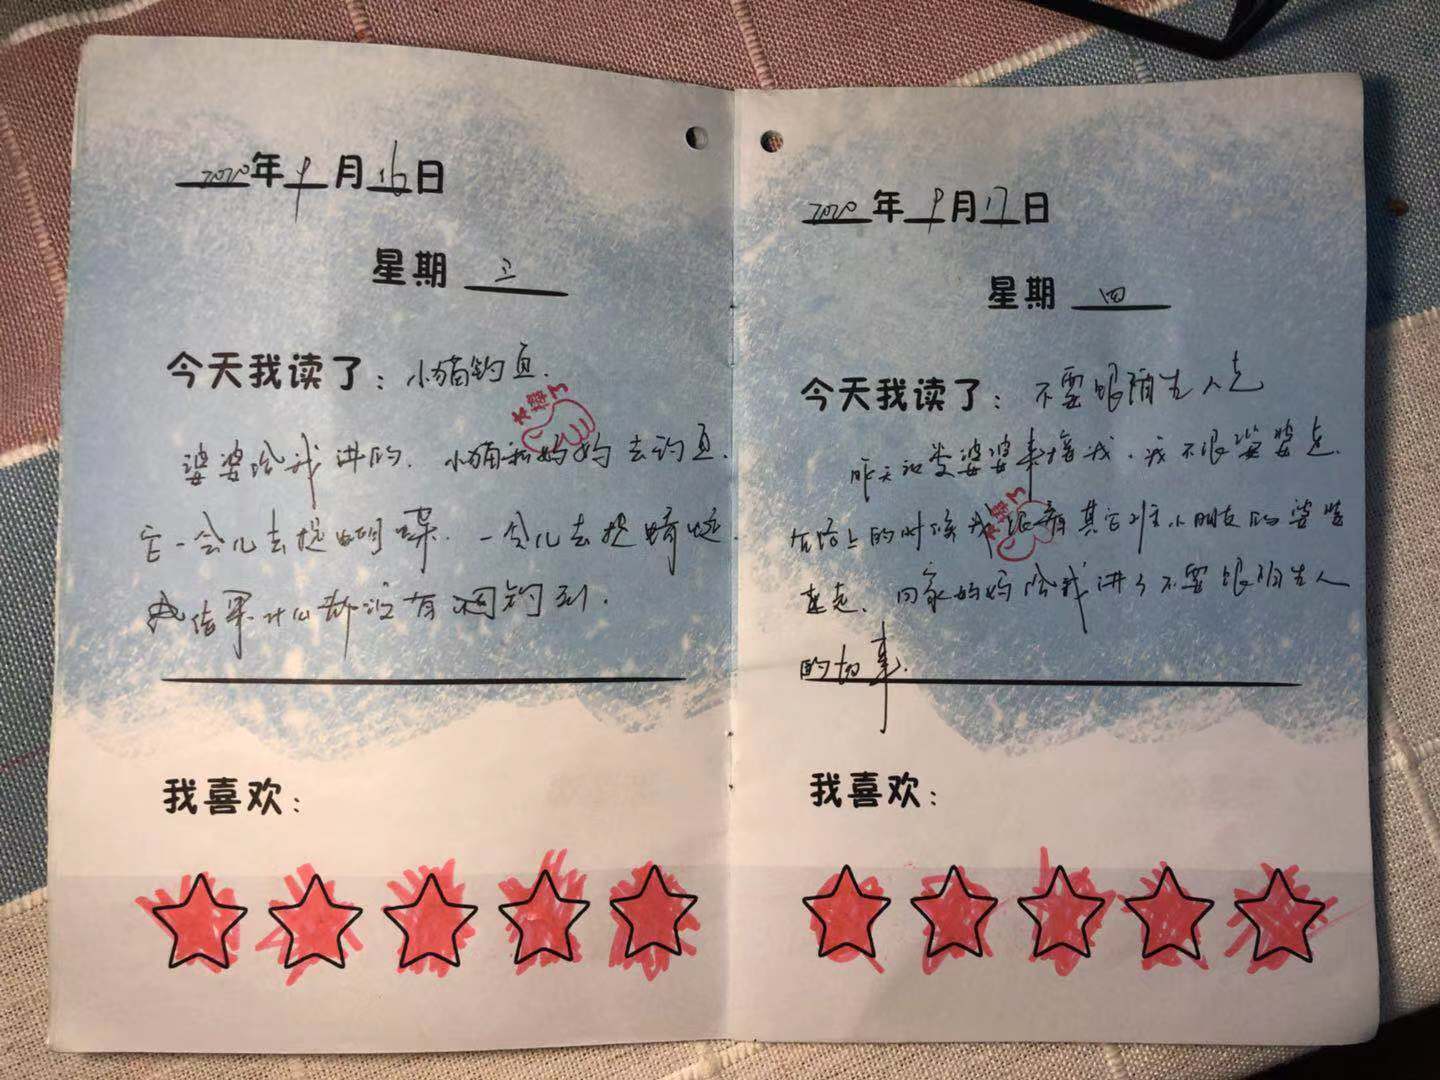 2020年9月16日
星期 三
今天我读了：小猫钓鱼.
太棒了
婆婆给我讲的. 小猫和妈妈去钓鱼.
它一会儿去捉蝴蝶. 一会儿去捉蜻蜓.
结果什么都没有钓到.
我喜欢：
2020年9月17日
星期 四
今天我读了：不要跟陌生人走
昨天 婆婆来接我, 我不跟婆婆走.
太棒了
在路上的时候我 其它班小朋友的婆婆
走. 回家妈妈给我讲了不要跟陌生人
的故事.
我喜欢：